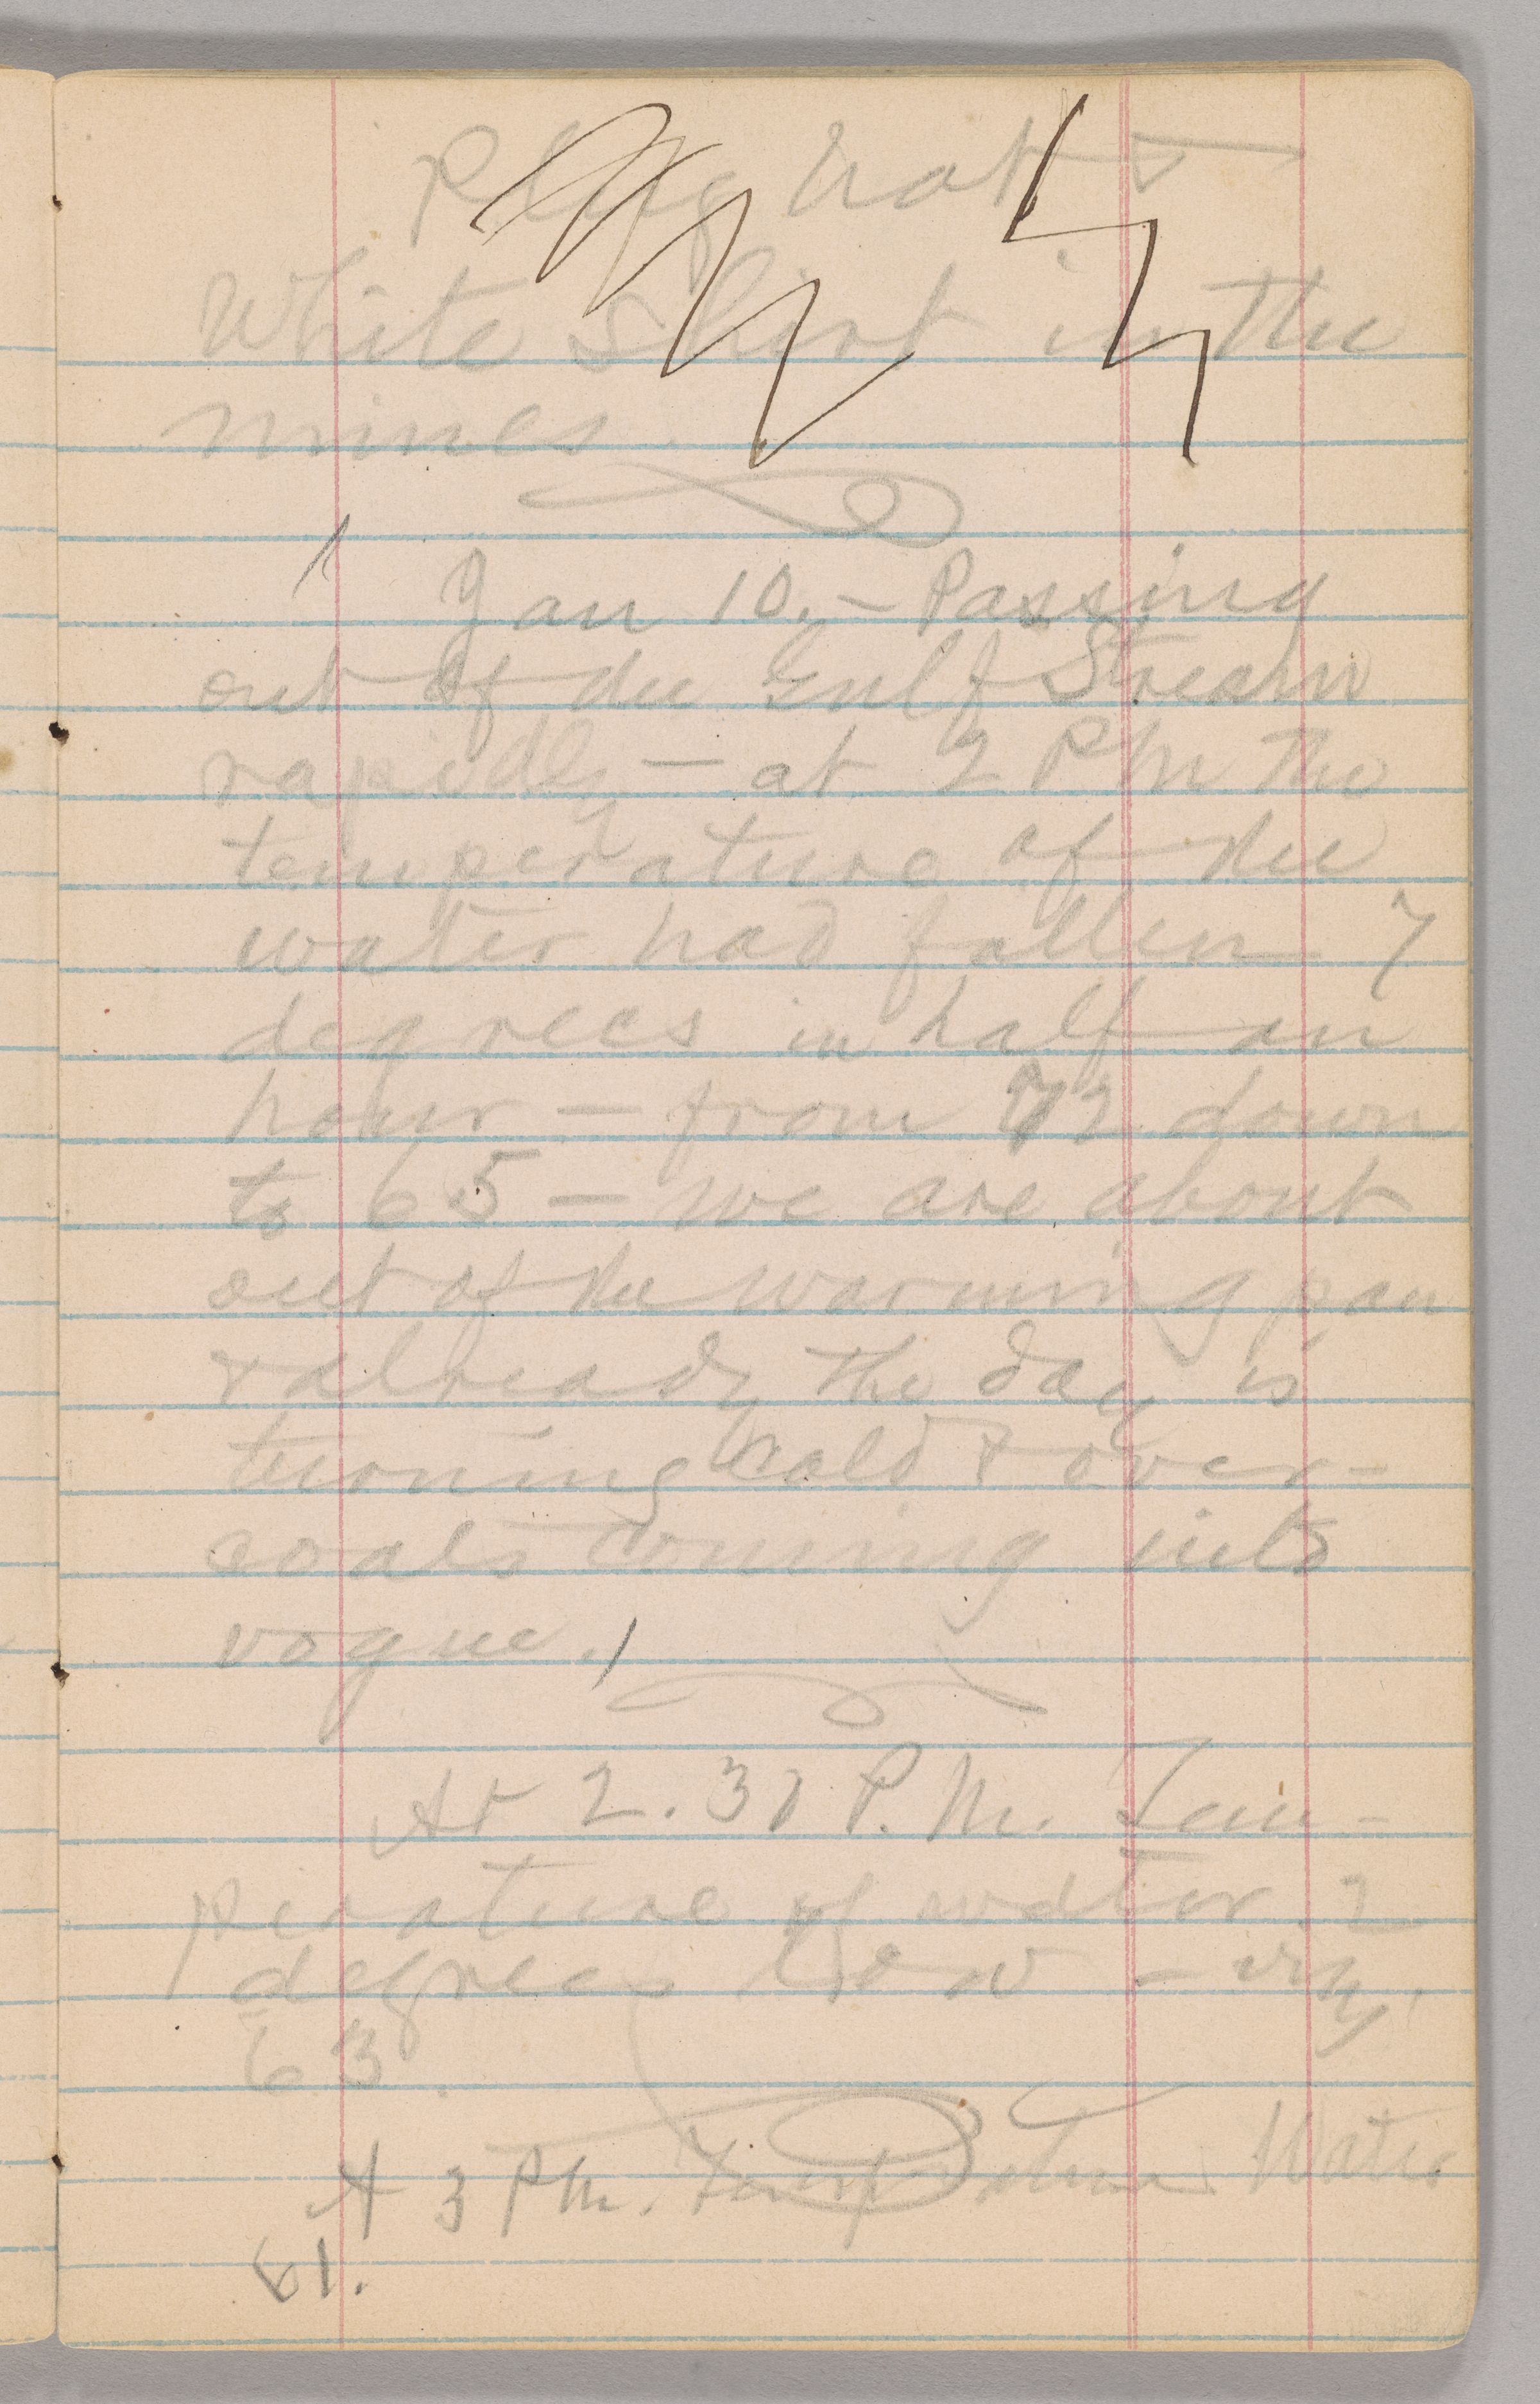 Plug hat &
White shirt in the
mines.
Jan 10. — Passing
out of the Gulf Stream
rapidly — at 2 PM the
temperature of the
water had fallen 7
degrees in half an
hour — from 72 down
to 65 — we are about
out of the warming pan
& already the day is
turning cold & over-
coats coming into
vogue.
At 2.37 P.M. Tem-
perature of water 2
degrees low — viz,
63.
At 3 PM. Temperature Water
61.